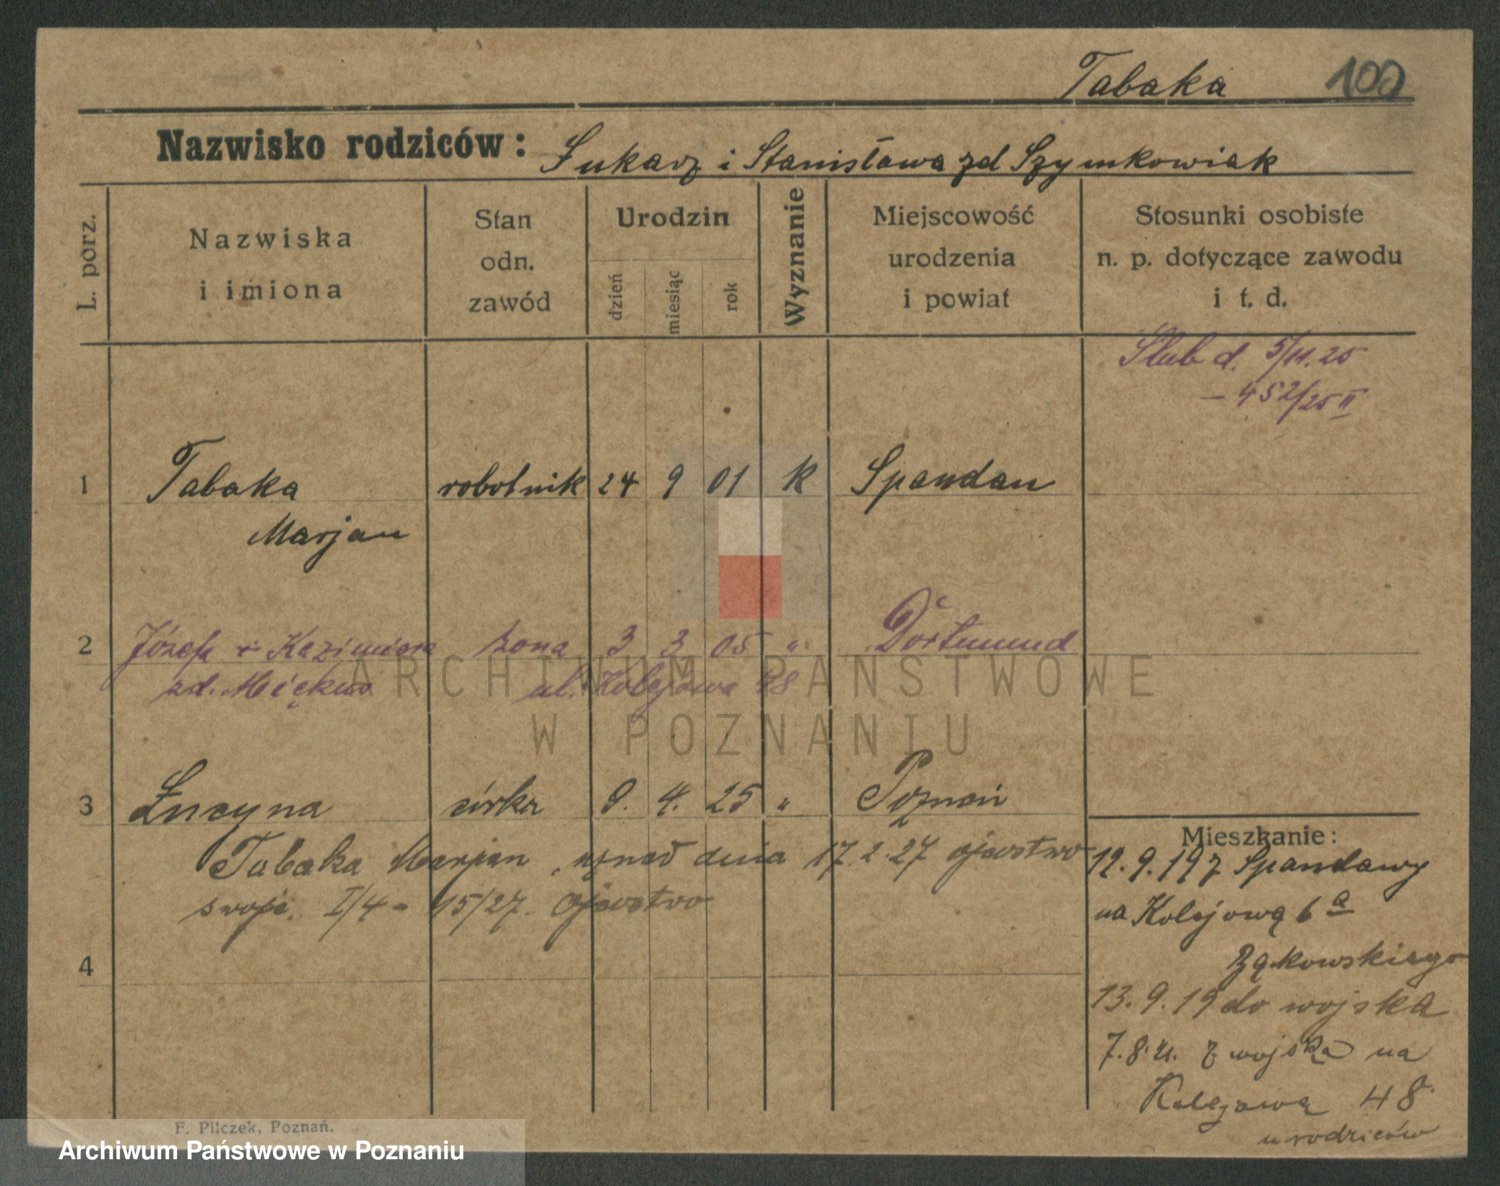 Tabaka 100
Nazwisko rodziców: Łukasz i Stanisława zd Szymkowiak
L. porz.
Nazwiska
i imiona
Stan
odn.
zawód
Urodzin
dzień
miesiąc
rok
Wyznanie
Miejscowość
urodzenia
i powiat
Stosunki osobiste
n. p. dotyczące zawodu
i t. d.
Ślub d. 5/11.25
– 452/25 II
1 Tabaka robotnik 24 9 01 k Spandau
Marjan
2 Józefa + Kazimiera żona 3 3 05 " Dortmund
zd. ul. Kolejowa 48
3 Łucyna córka 9. 4. 25 " Poznań
Tabaka Marjan, uznał dnia 17.2.27 ojcostwo
swoje. I/4 – 15/27. Ojcostwo
4
Mieszkanie:
12.9.197 Spandawy
na Kolejową 6 a
Bąkowskiego
13.9.19 do wojska
7.8.21. z wojska na
Kolejową 48
u rodziców
F. Pilczek, Poznań.
ARCHIWUM PAŃSTWOWE
W POZNANIU
Archiwum Państwowe w Poznaniu